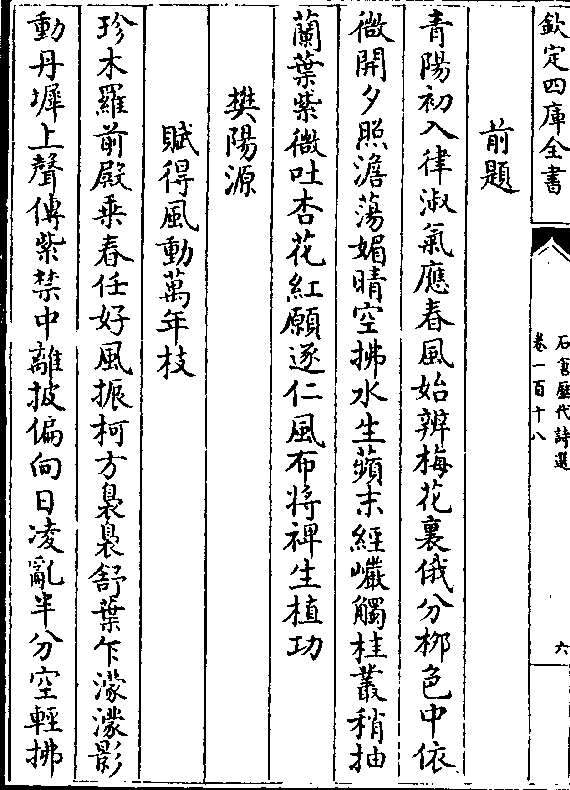 欽定四庫全書
石倉歷代詩選
卷一百十八
六
前題
青陽初入律淑氣應春風始辨梅花裏俄分栁色中依
微開夕照澹蕩媚晴空拂水生蘋末經巘觸桂叢稍抽
蘭葉紫微吐杏花紅願逐仁風布将裨生植功
樊陽源
賦得風動萬年枝
珍木羅前殿乗春任好風振柯方裊裊舒葉乍濛濛影
動丹墀上聲傳紫禁中離披偏向日凌亂半分空輕拂